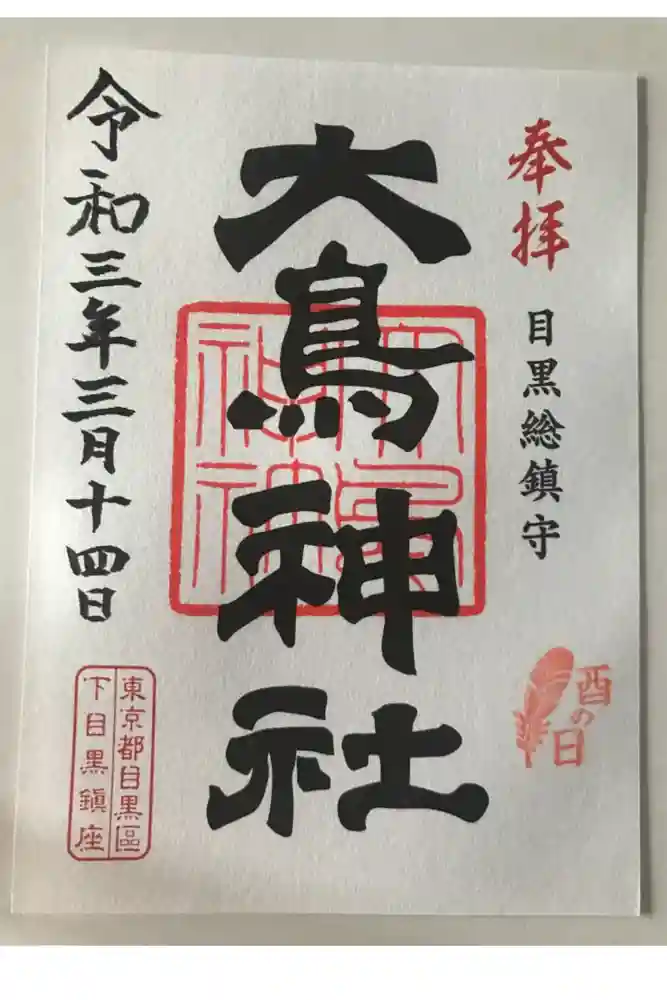 奉拝
目黒総鎮守
酉の日
大鳥神社
大鳥神社
令和三年三月十四日
東京都目黒區
下目黒鎮座